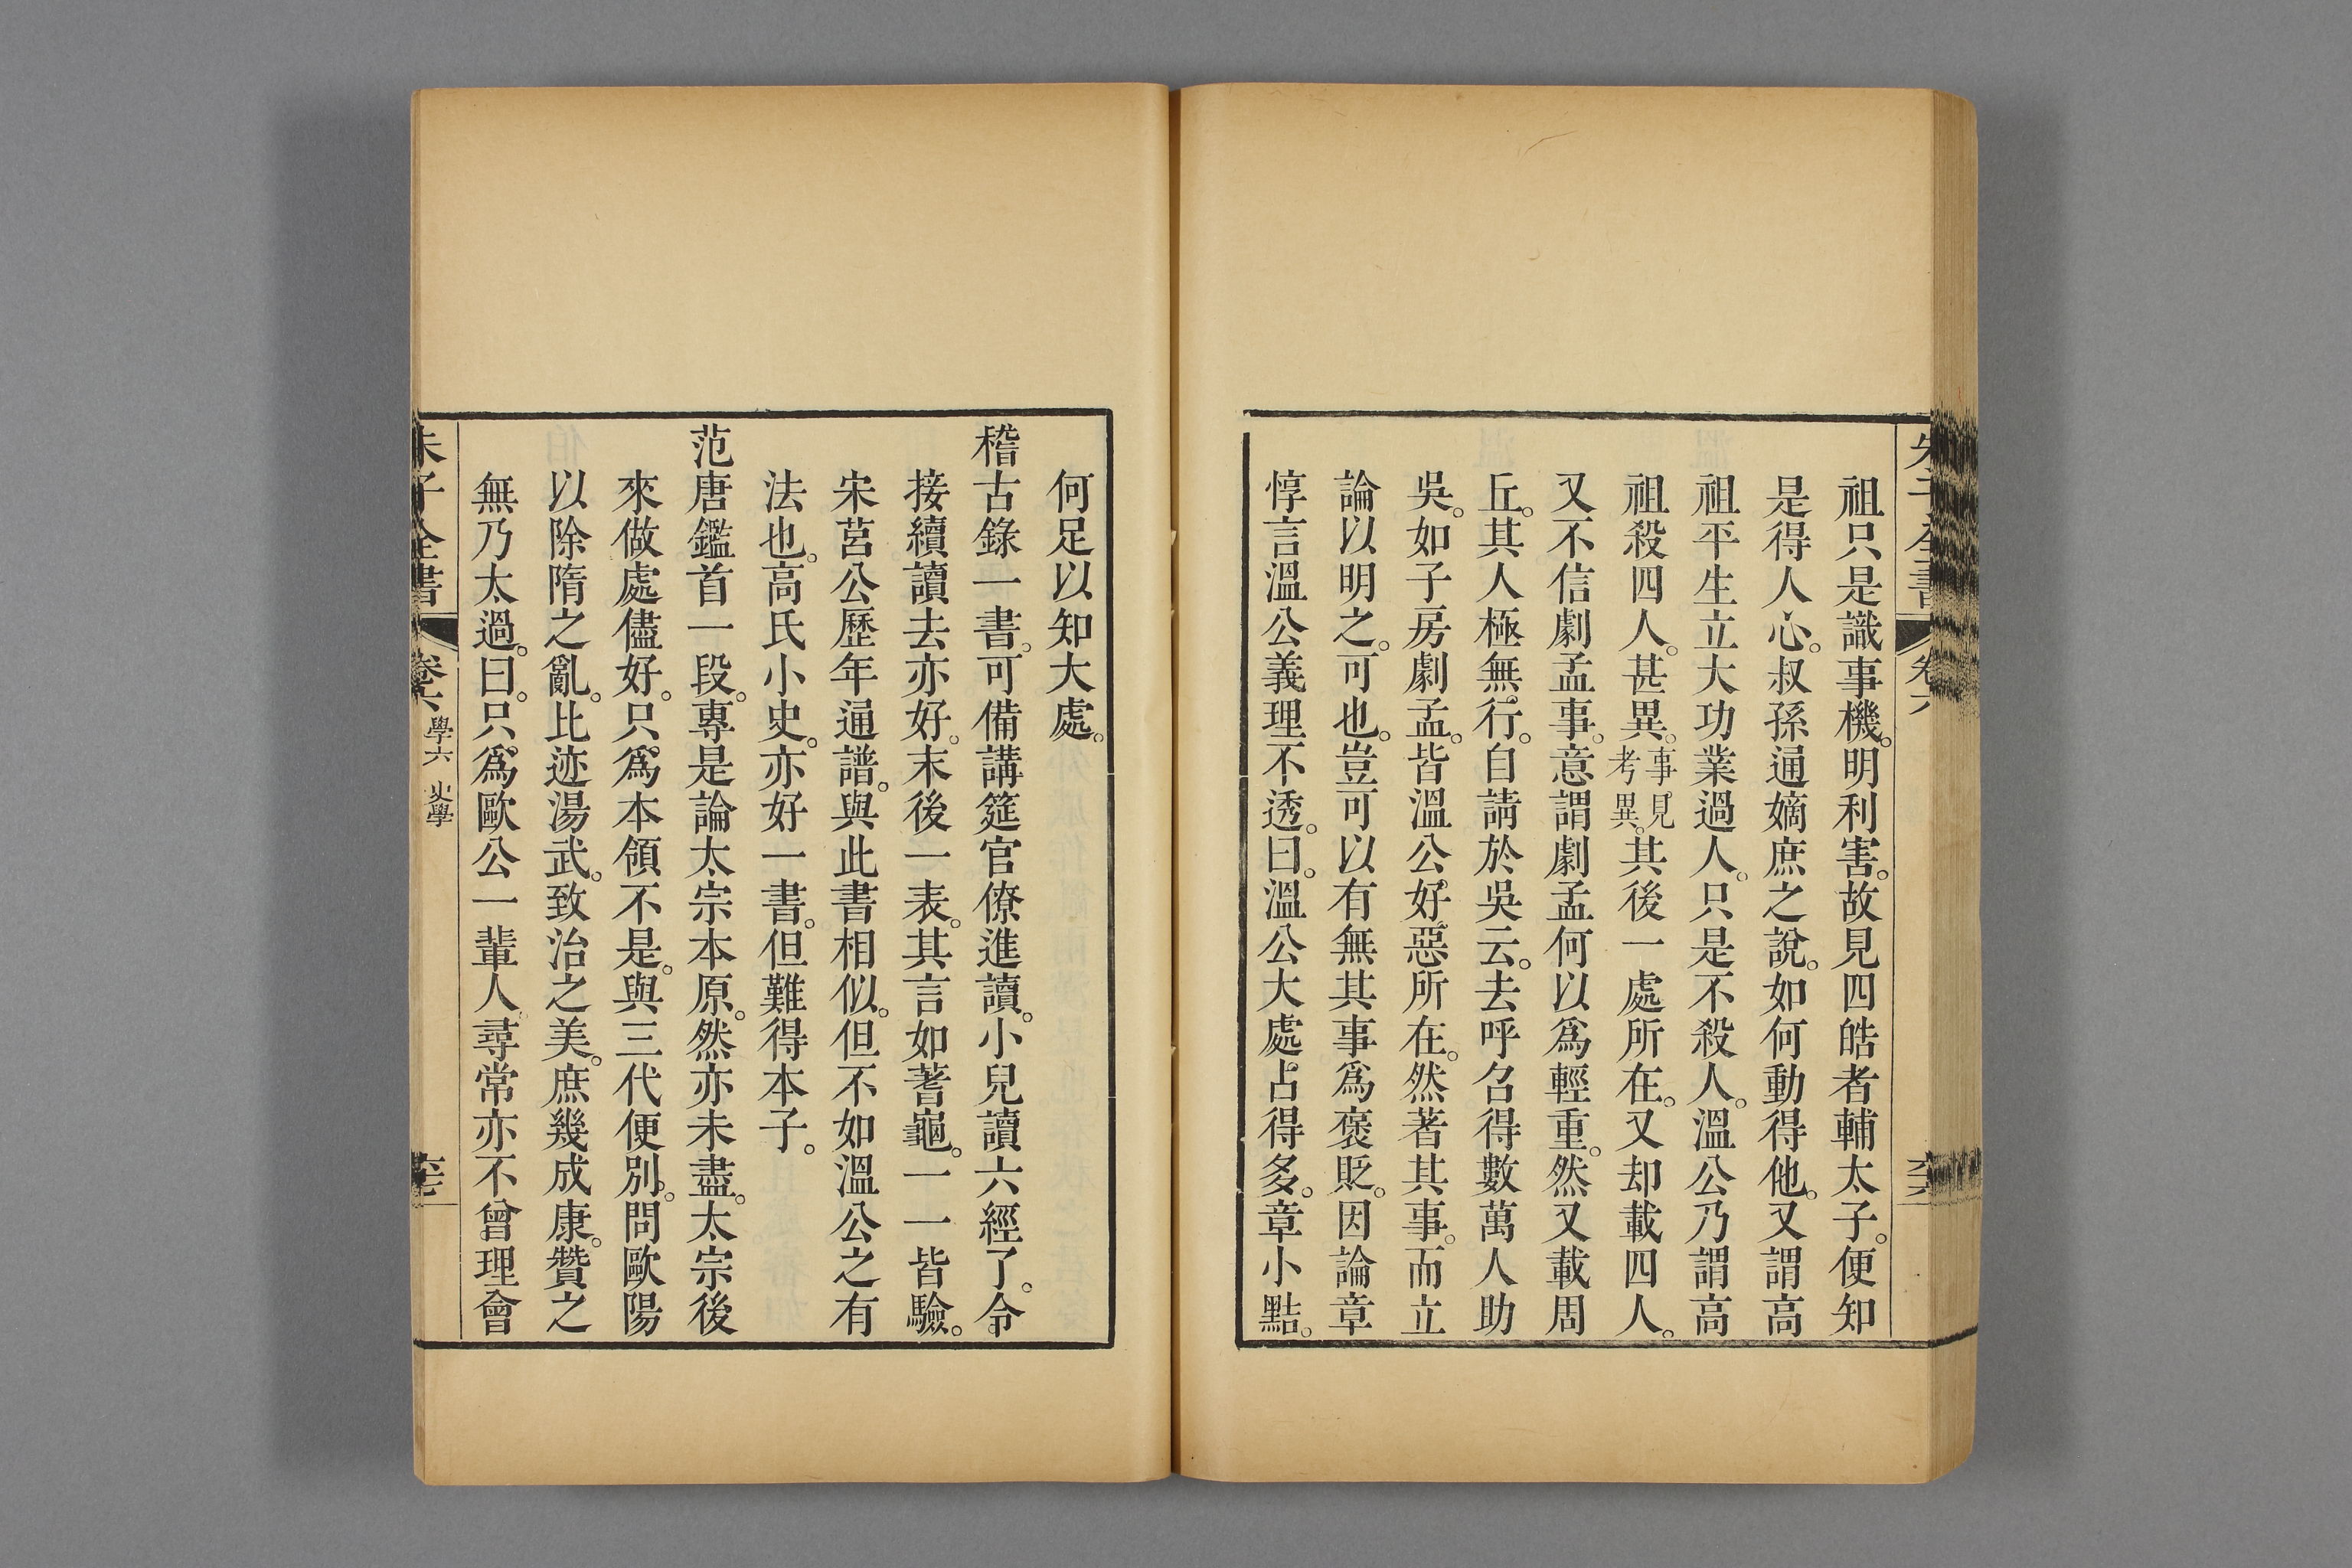 祖只是識事機。明利害。故見四皓者輔太子。便知
是得人心。叔孫通嫡庶之說。如何動得他。又謂高
祖平生立大功業過人。只是不殺人。溫公乃謂高
祖殺四人。甚異。事見考異。其後一處所在。又却載四人。
又不信劇孟事。意謂劇孟何以爲輕重。然又載周
丘。其人極無行。自請於吳云。去呼召得數萬人助
吳。如子房劇孟。皆溫公好惡所在。然著其事。而立
論以明之。可也。豈可以有無其事爲褒貶。因論章
惇言溫公義理不透。曰。溫公大處占得多。章小黠。
何足以知大處。
稽古錄一書。可備講筵官僚進讀。小兒讀六經了。令
接續讀去亦好。末後一表。其言如蓍龜。一一皆驗。
宋莒公歷年通譜。與此書相似。但不如溫公之有
法也。高氏小史。亦好一書。但難得本子。
范唐鑑首一段。專是論太宗本原。然亦未盡。太宗後
來做處儘好。只爲本領不是。與三代便別。問歐陽
以除隋之亂。比迹湯武。致治之美。庶幾成康。贊之
無乃太過。曰。只爲歐公一輩人尋常亦不曾理會
朱子全書 卷六 學六 史學